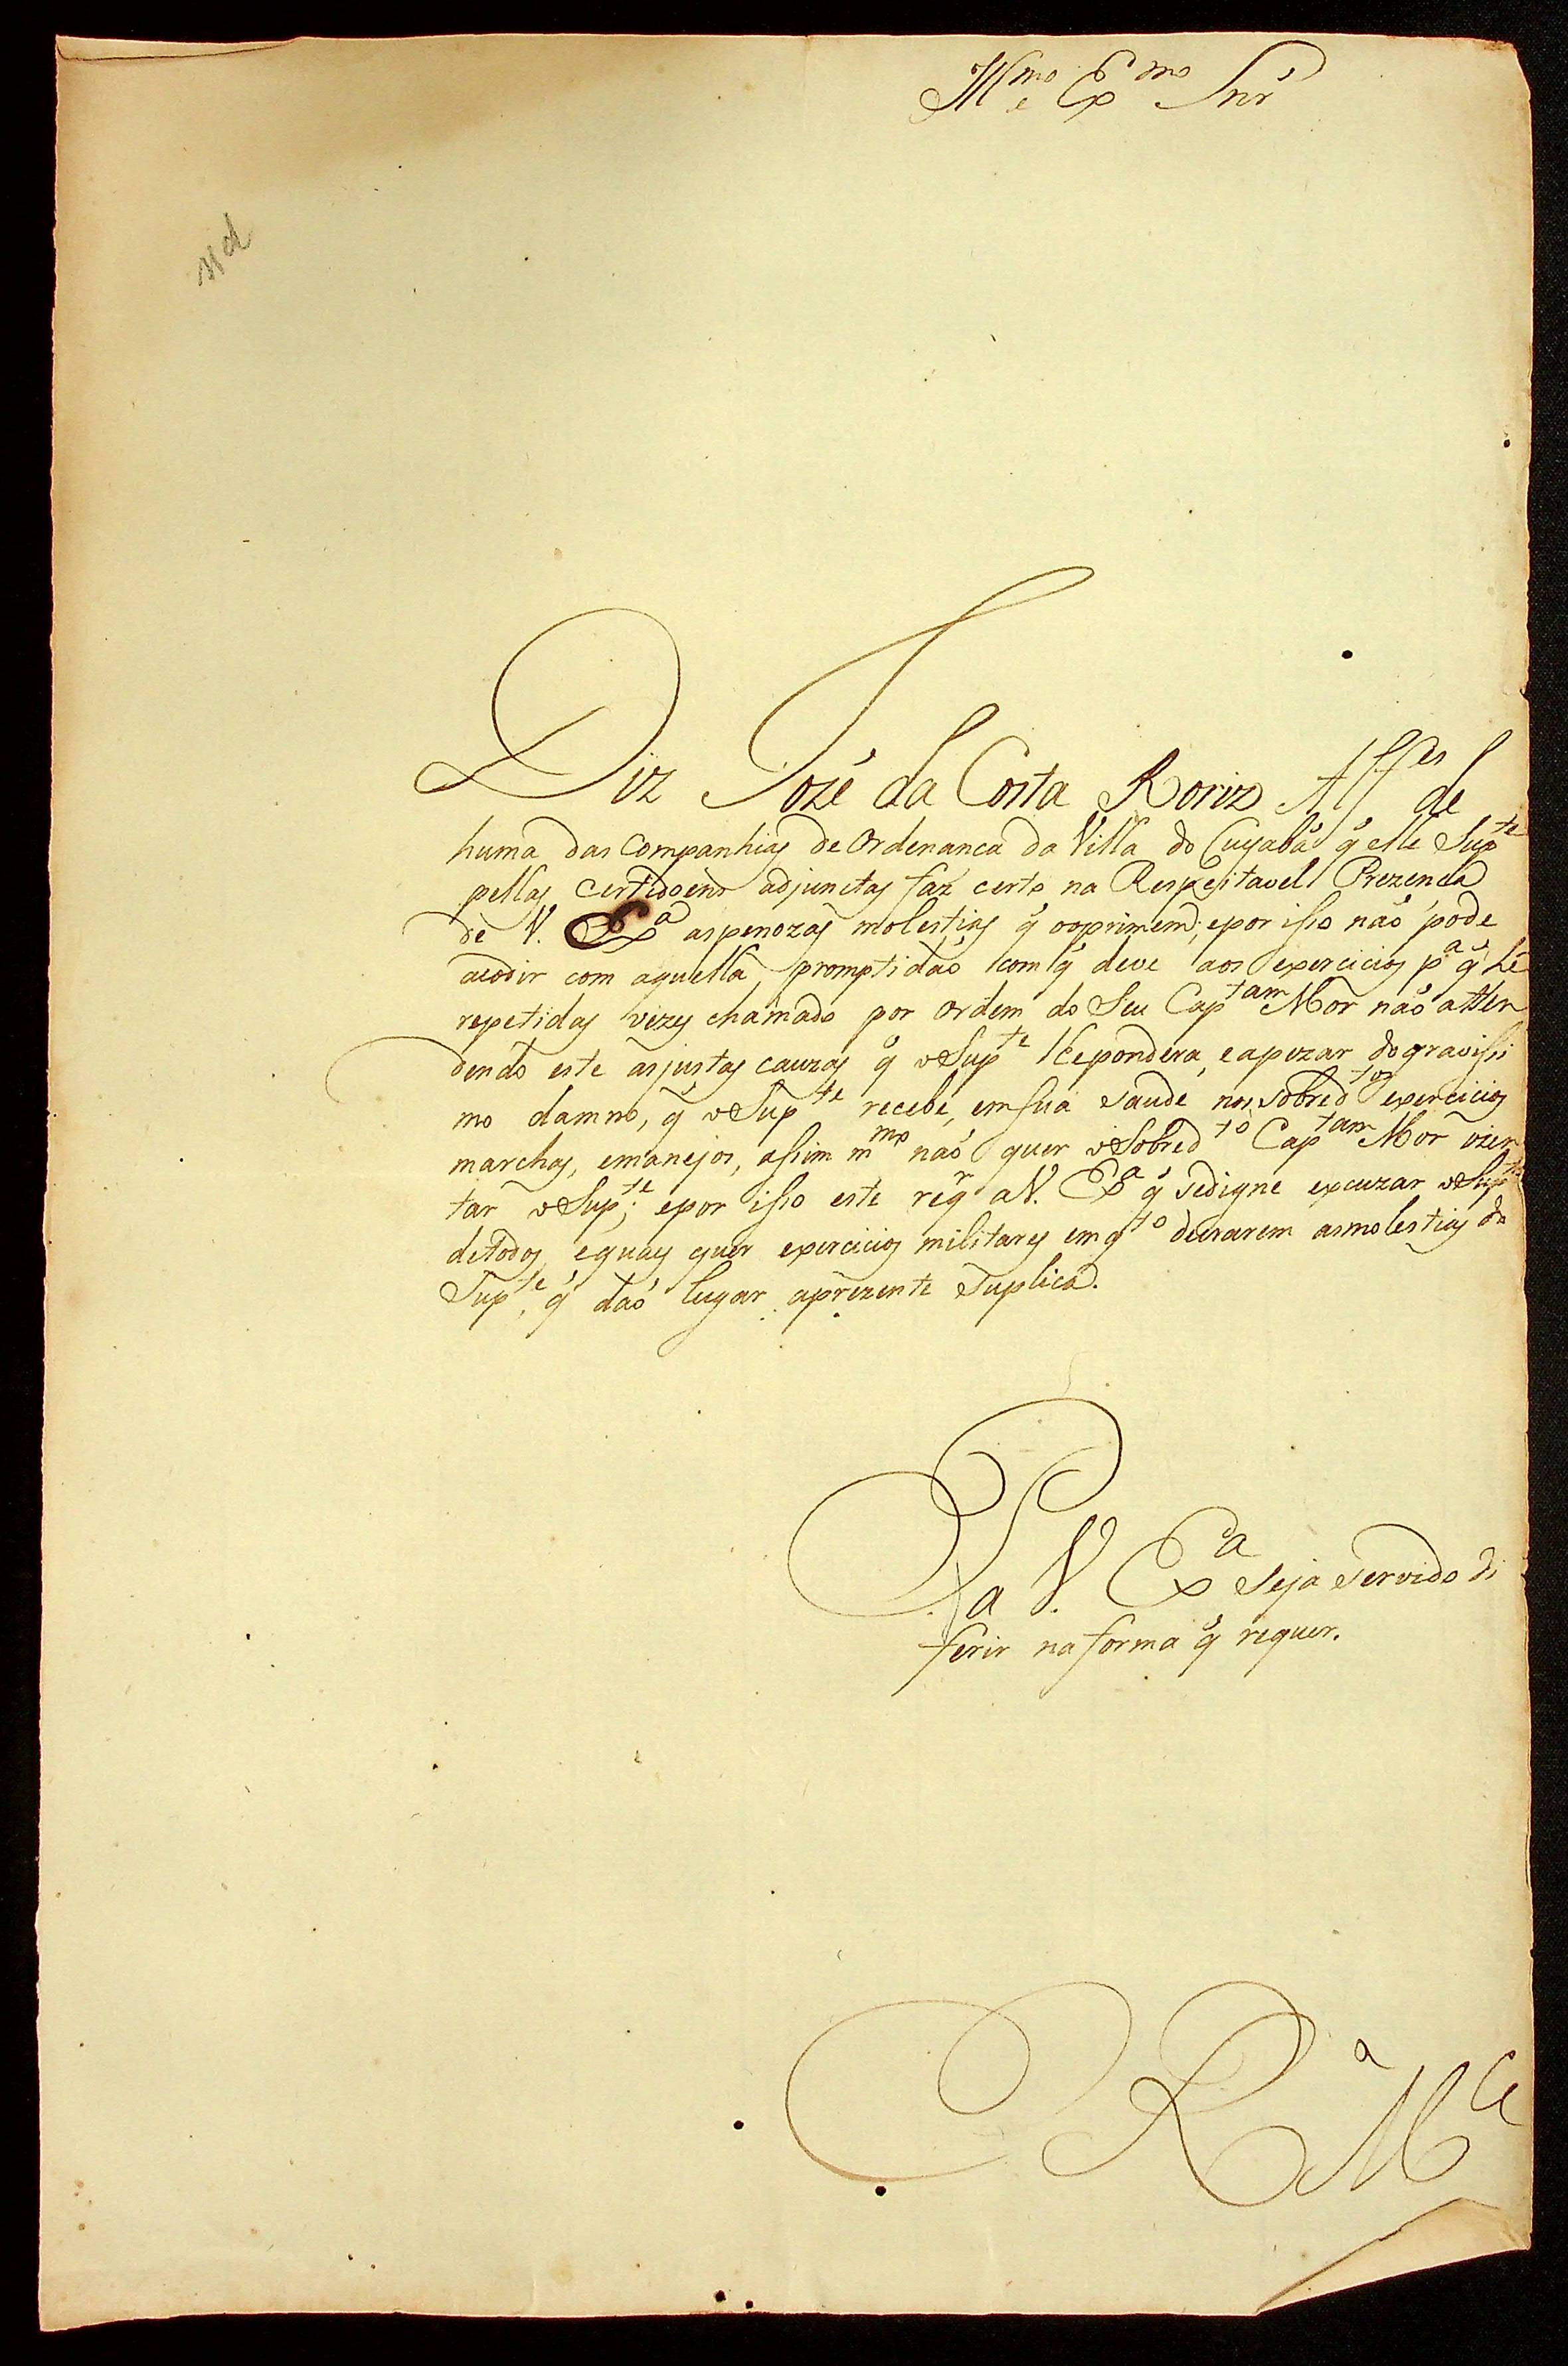 Ill^mo e Ex^mo Snr'
Diz Jozé da Costa Roriz Alf^es de
huma das Companhias de Ordenanca da Villa do Cuyabá q̃ elle Sup^te
pellas certidoens adjunctas faz certo na Respeitavel Prezenca
de V. Ex^a aspenozas molestias q̃ ooprimem; epor isso naõ pode
acodir com aquella promptidaõ com q̃ deve aos exercicios p^a q̃ hé
repetidas vezes chamado por ordem do Seu Cap^tam Mor naõ atten
dendo este asjustas cauzas q̃ oSup^te lhepondera, eapezar dogravissi
mo damno, q̃ oSup^te recebe, emsua saude nos sobred^tos exercicios
marchas, emanejos, assim m^mo naõ quer oSobred^to Cap^tam Mor izen
tar oSup^te; epor isso este req^r aV. Ex^a q̃ sedigne excuzar oSup^te
detodos, equaes quer exercicios militares emq^to durarem asmolestias do
Sup^te, q̃ daõ lugar aprezente suplica.
P. a V. Ex^a seja servido di
ferir naforma q̃ requer.
E R^a M^ce